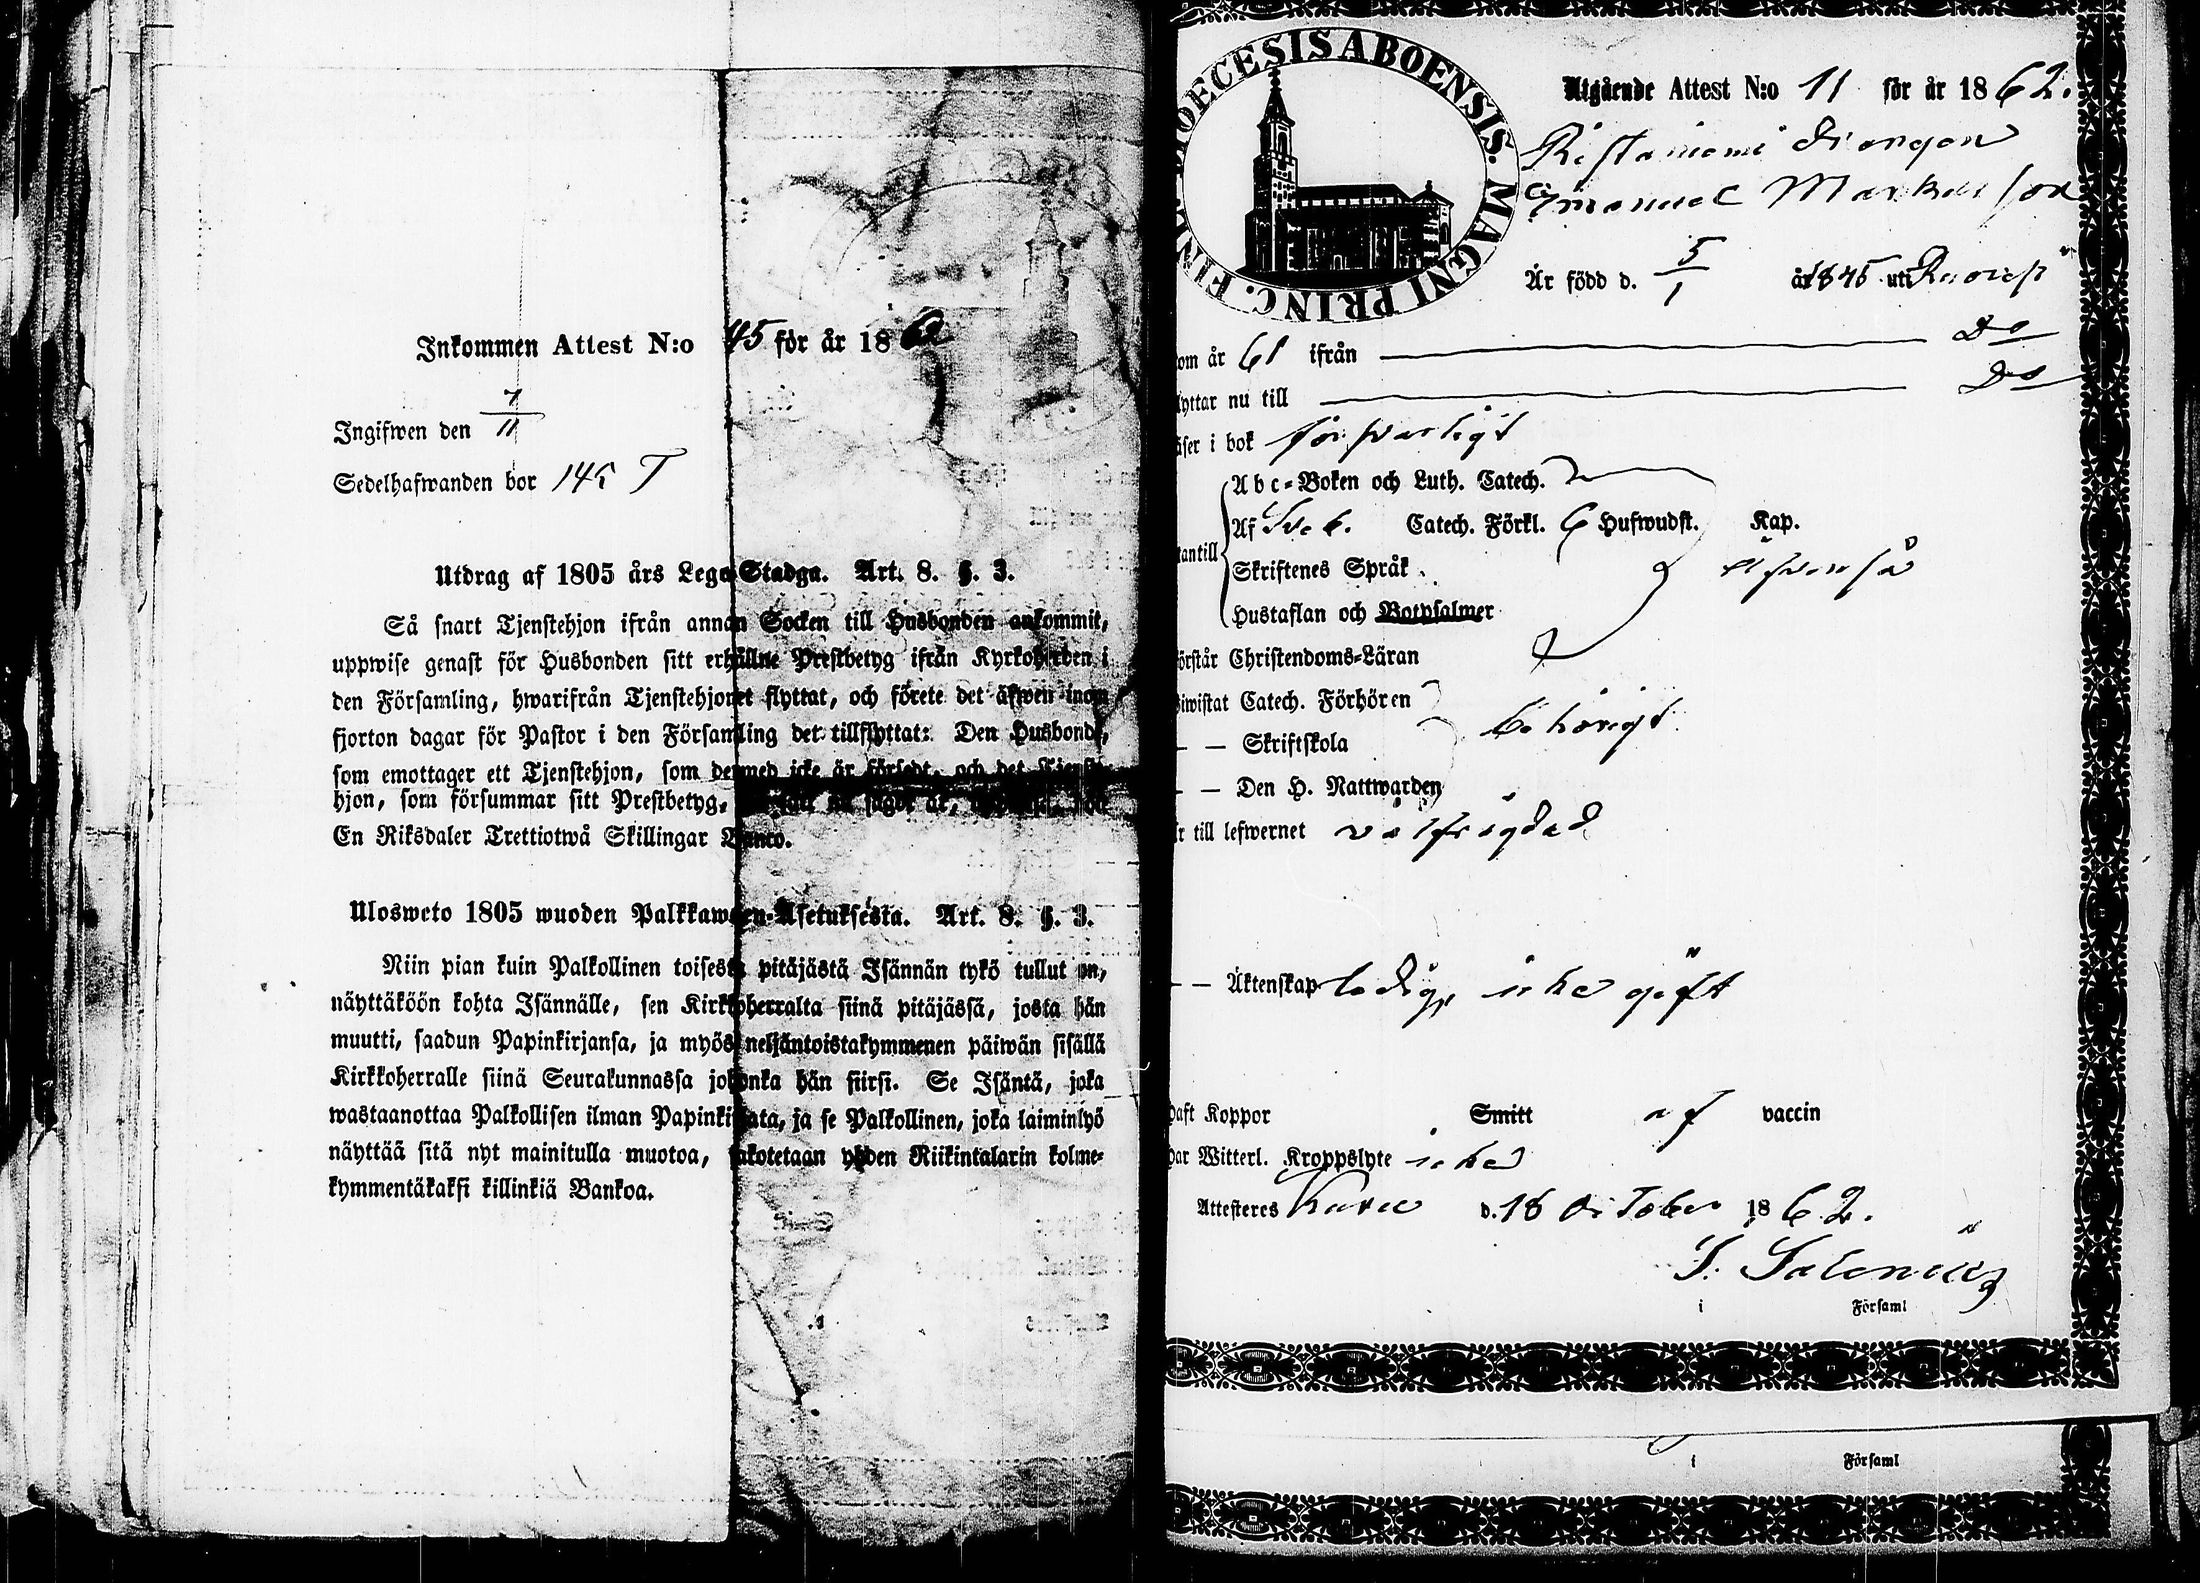 Inkommen Attest N:o 45 för år 1862
Ingifwen den 7/11
Sedelhafwanden bor 145 T
Utdrag af 1805 års Lego-Stadga. Art. 8. §. 3.
Så snart Tjenstehjon ifrån annan Socken till Husbonden ankommit,
uppwise genast för Husbonden sitt erhållne Prestbetyg ifrån Kyrkoherden i
den Församling, hwarifrån Tjenstehjonet flyttat, och förete det äfwen inom
fjorton dagar för Pastor i den Församling det tillflyttat: Den Husbonde,
som emottager ett Tjenstehjon, som dermed icke är försedt, och det Tjenste-
hjon, som försummar sitt Prestbetyg, sagdt är,
En Riksdaler Trettiotwå Skillingar Banco.
Ulosweto 1805 wuoden Palkkawäen-Asetuksesta. Art. 8. §. 3.
Niin pian kuin Palkollinen toisesta pitäjästä Isännän tykö tullut on,
näyttäköön kohta Isännälle, sen Kirkkoherralta siinä pitäjässä, josta hän
muutti, saadun Papinkirjansa, ja myös neljäntoistakymmenen päiwän sisällä
Kirkkoherralle siinä Seurakunnassa johonka hän siirsi. Se Isäntä, joka
wastaanottaa Palkollisen ilman Papinkirjata, ja se Palkollinen, joka laiminlyö
näyttää sitä nyt mainitulla muotoa, sakotetaan yhden Riikintalarin kolme-
kymmentäkaksi killinkiä Bankoa.
DIOECESIS ABOENSIS. MAGNI PRINC. FINL.
Utgående Attest N:o 11 för år 1862.
Ristaniemi drängen
Emanuel Markusson
Är född d. 5/1 år 1845 uti
om år 61 ifrån Do
lyttar nu till Do
äser i bok försvarligt
Abc-Boken och Luth. Catech.
Af Sveb. Catech. Förkl. 6 Hufwudst. Kap.
tantill
Skriftenes Språk äfvenså
Hustaflan och Botpsalmer
örstår Christendoms-Läran
iwistat Catech. Förhören
— — Skriftskola behörigt
— — Den H. Nattwarden
r till lefwernet välfrägdad
— — Äktenskap ledig, icke gift
haft Koppor Smitt af vaccin
har Witterl. Kroppslyte icke
Attesteres d. 18 October 1862.
S. Salenius
i Församl
i Församl